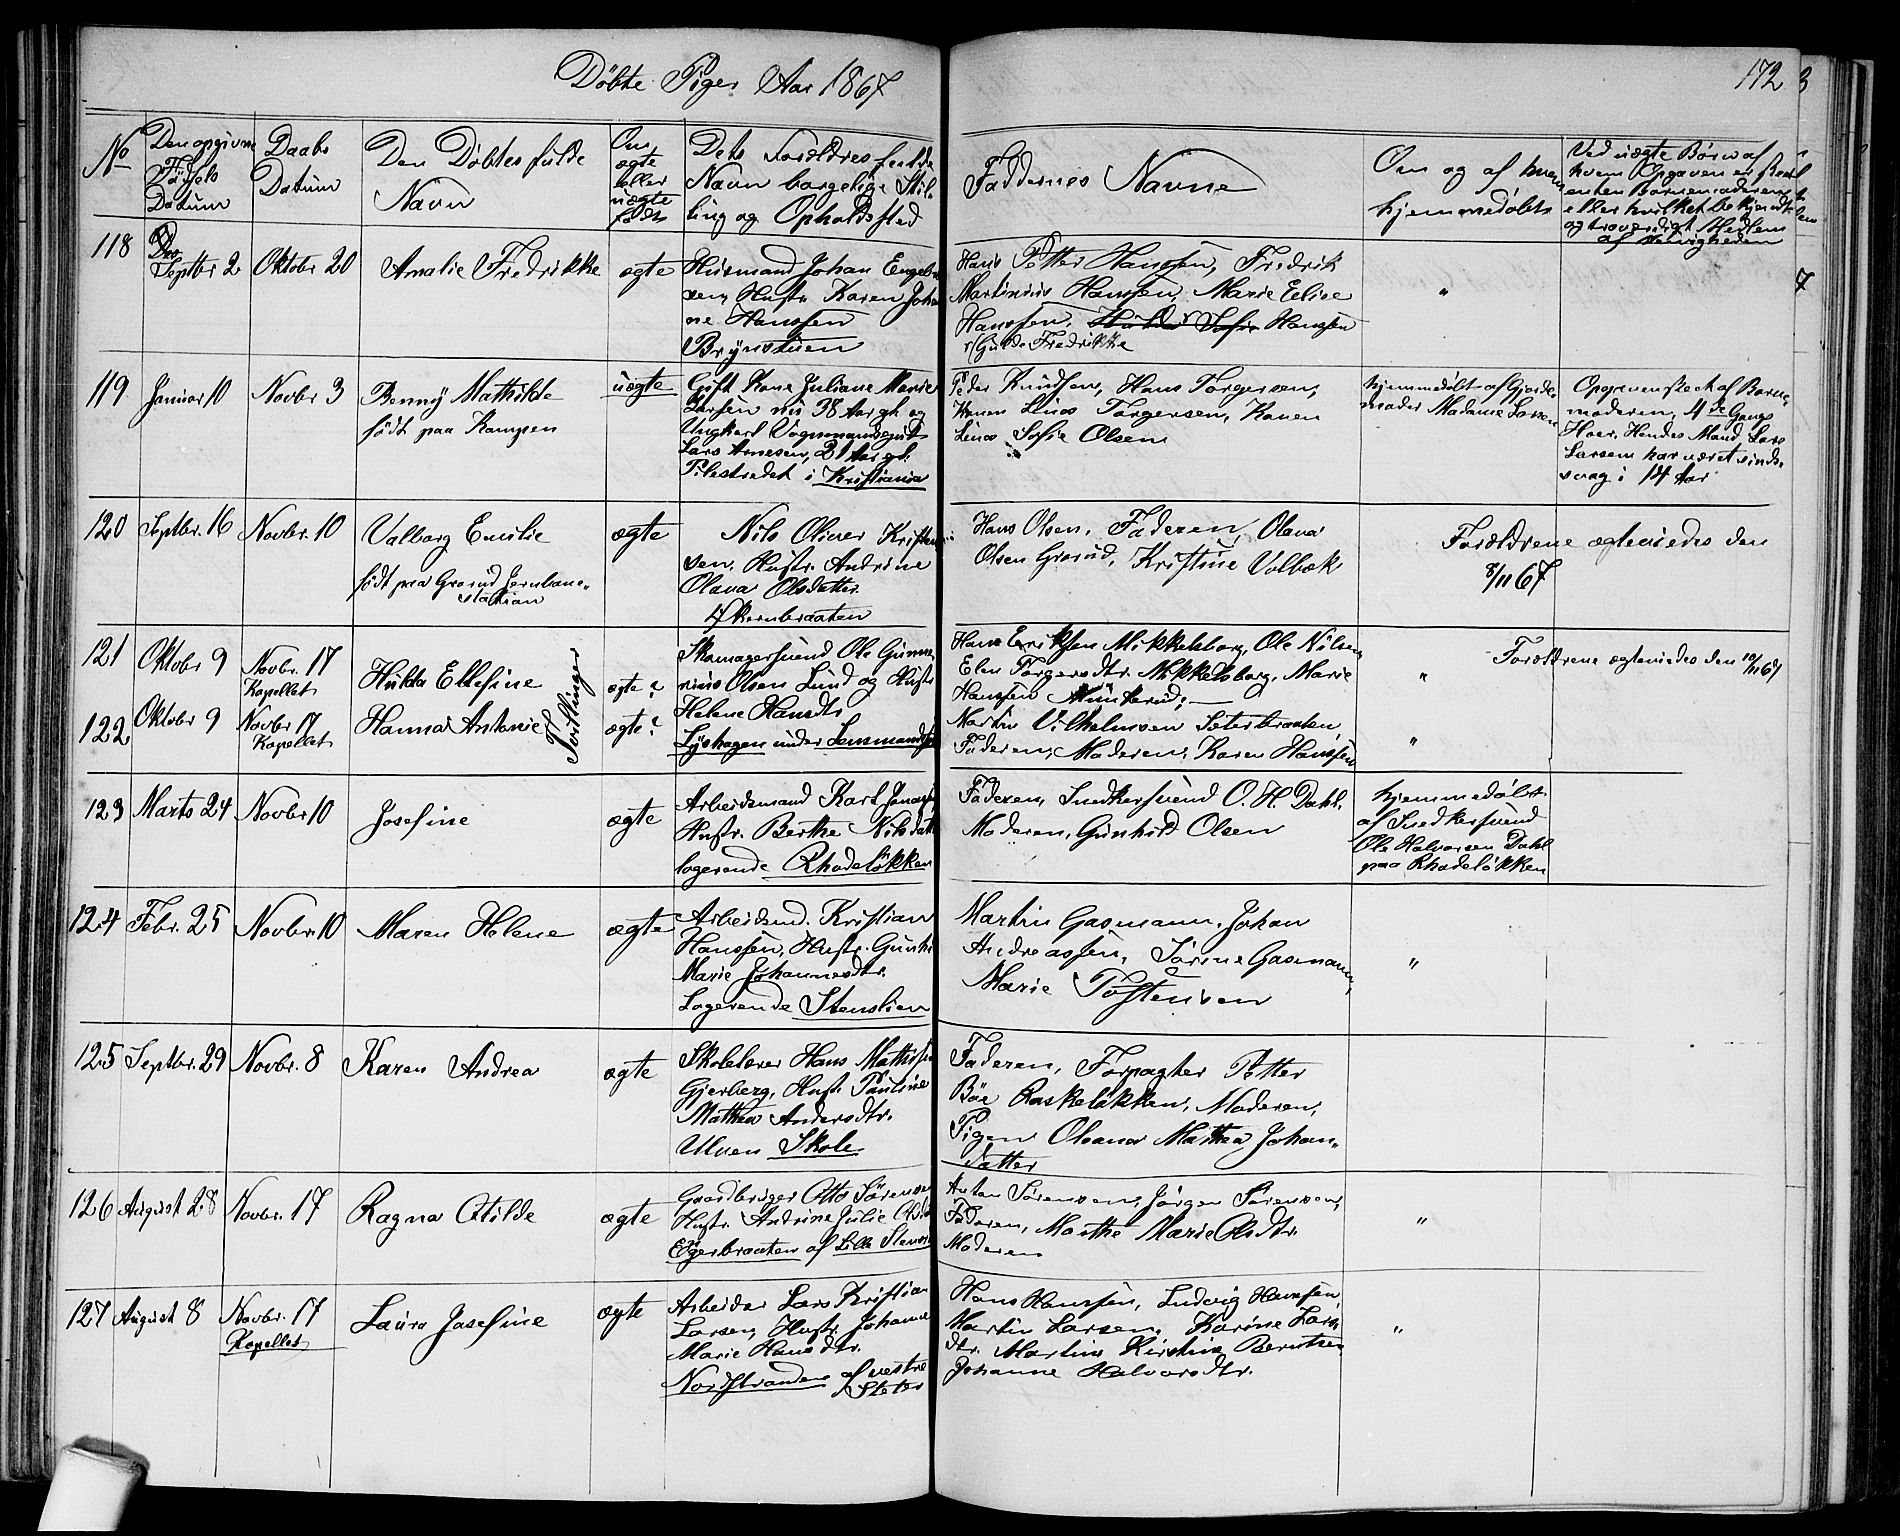 Döbte Piger Aar 1867
172
No
Den opgivne
Födsels
Datum
Daabs
Datum
Den Döbtes fulde
Navn
Om
ægte
eller
uægte
födt
Dets Forældres fulde
Navn borgelige Stil-
ling og Opholdssted
Faddernes Navne
Om og af hvem
hjemmedöbt
Ved uægte Börn af
hvem Opgaven er skeet
enten Barnemoderen
eller hvilket bekjendt
og troværdigt Medlem
af Menigheden
118
Septbr 2
Oktober 20
Amalie Fredrikke
ægte
Husmand Johan Engebr
sen, Hustr. Karen Joha
ne Hanssen
Brynstuen
Hans Petter Hanssen, Fredrik
Martinius Hanssen, Marie Elise
Hanssen, Hulda Sofie Hanssen
Fredrikke
"
119
Januar 10
Novbr 3
Benny Mathilde
födt paa Kampen
uægte
Gift Kone Juliane Marie
Larsen nu 38 Aar gl. og
Ungkarl Vognmandsgut
Lars Arnesen, 21 Aar gl.
Pilestrædet i Kristiania
Peder Knudsen, Hans Torgersen,
Karen Torgersen, Karen
Sofie Olsen
hjemmedöbt af Gjorde-
moder Madame Larsen
Opgaven skeet af Barne-
moderen, 4de Gangs
Hoer. Hendes Mand Lars
Larsen har været sinds-
svag i 14 Aar
120
Septbr. 16
Novbr. 10
Valborg Emilie
födt paa Grorud Jernbane-
station
ægte
Nils Oliver Kristen
sen, Hustr. Andrine
Olava Olsdatter
Økernbraaten
Hans Olsen, Faderen, Olava
Olsen Grorud, Kristine Volbæk
Forældrene ægteviedes den
8/11 67
121
Oktober 9
Novbr. 17
Kapellet
Hulda Ellefine
ægte?
Tvillinger
Skomagersvend Ole Gunne
rius Olsen Lund og Hustr
Helene Hansdtr.
Lyshagen under Lensmands
Hans Eriksen Mikkelsborg, Ole Nilsen
Elen Torgersdtr. Mikkelsborg, Marie
Hanssen Munkerud;
"
Forældrene ægteviedes den 10/11 67
122
Oktober 9
Novbr 17
Kapellet
Hanna Antonie
ægte?
Martin Vilhelmsen Seterbraaten,
Faderen, Moderen, Karen Hanssen
"
123
Marts 24
Novbr 10
Josefine
ægte
Arbeidsmand Karl
Hustr. Berthe Nilsdatt
logerende Rhodelökken
Faderen, Snedkersvend O. H. Dahl,
Moderen, Gunhild Olsen
hjemmedöbt
af Snedkersvend
Ole Halvorsen Dahl
paa Rhodelökken
124
Febr. 25
Novbr. 10
Maren Helene
ægte
Arbeidsmd. Kristian
Hanssen, Hustr. Gunhi
Marie Johannesdtr.
Logerende Stenslien
Martin Gasmann, Johan
Andreassen, Sörine Gasmann,
Marie Tostensen
"
125
Septbr. 29
Novbr. 8
Karen Andrea
ægte
Skolelærer Hans Mathisen
Gjerberg, Hustr. Pauline
Mathea Andersdtr.
Ulven Skole
Faderen, Forpagter Petter
Böe Raskelökken, Moderen,
Pigen Oleana Mathea Johan-
datter
126
August 28
Novbr. 17
Ragna Otilde
ægte
Gaardbruger Otto Sörensen
Hustr. Andrine Julie
Egerbraaten af Lille Stensr
Anton Sörensen, Jörgen Sörensen,
Faderen, Marthe Marie Olsdtr.
Moderen
"
127
August 8
Novbr. 17
Kapellet
Laura Josefine
ægte
Arbeider Lars Kristian
Larsen, Hustr. Johanne
Marie Hansdtr.
Nordstranden af vestre
Hans Hanssen, Ludvig Hanssen,
Martin Larsen, Karine Lars
dtr. Martine Kirstine Berntsen
Johanne Halvorsdtr.
"